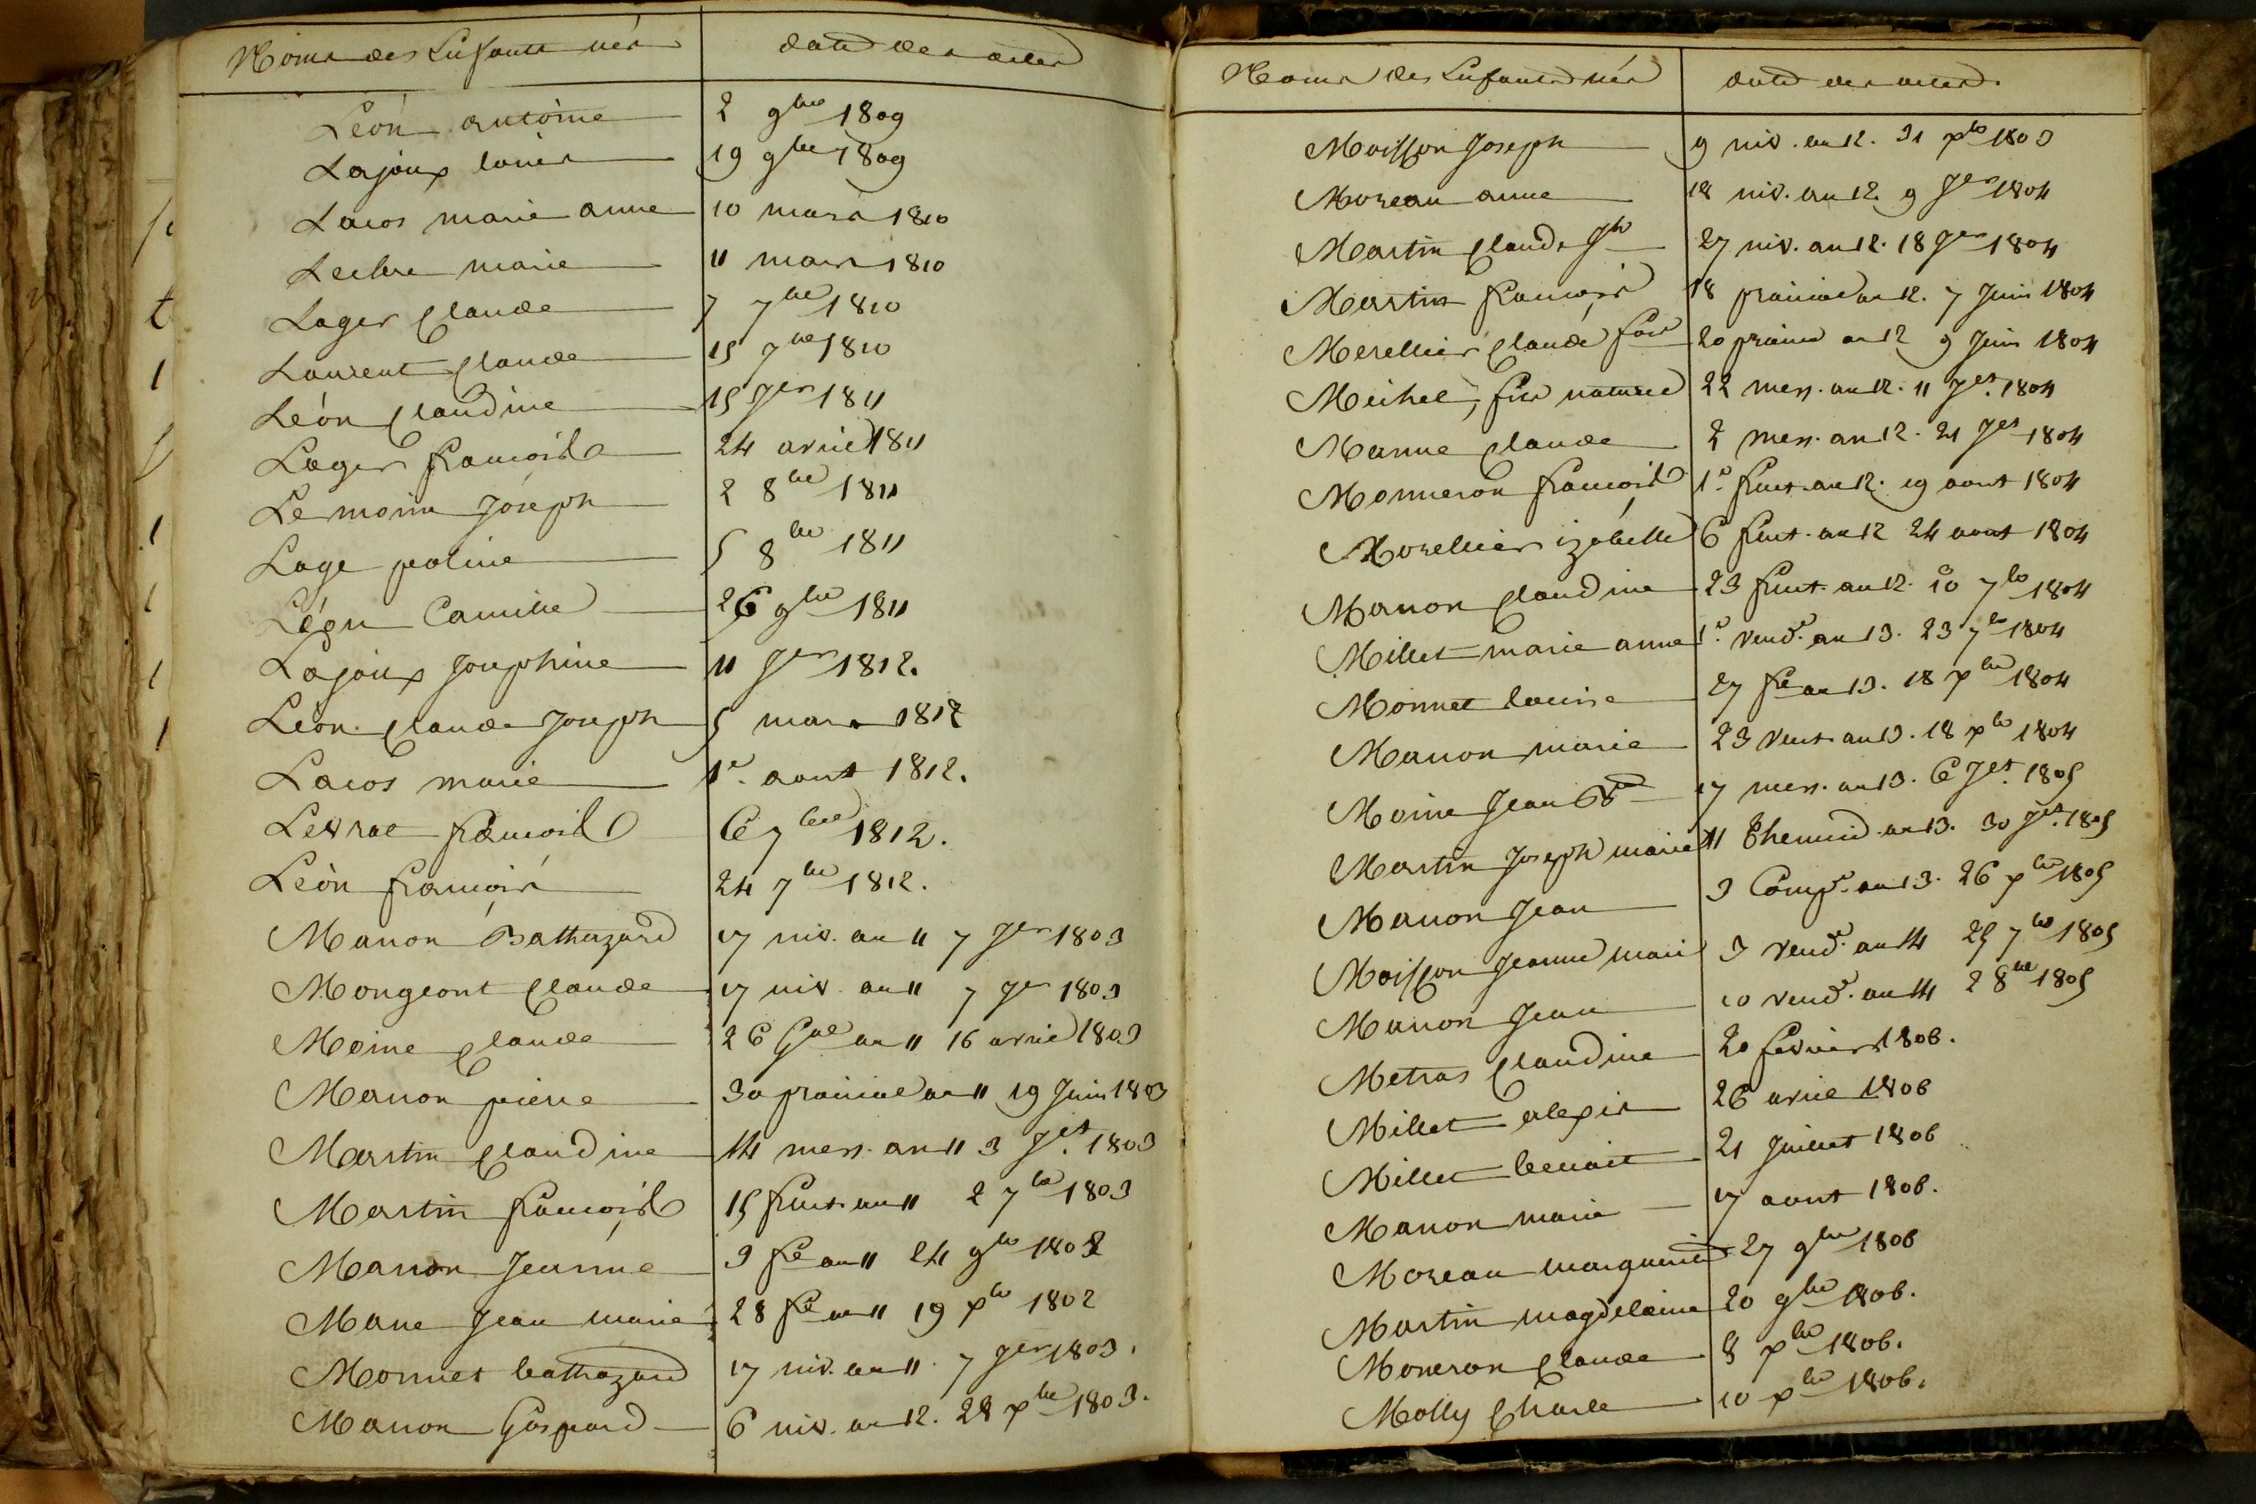 Noms des Enfants nés | date des actes
Léon antoine | 2 9bre 1809
Lajoux louis | 19 9bre 1809
Lacos marie anne | 10 mars 1810
Leclere marie | 11 mars 1810
Lager Claude | 7 7bre 1810
Laurent Claude | 15 7bre 1810
Léon Claudine | 15 Jer 1811
Lager francoise | 24 avril 1811
Lemoine Joseph | 2 8bre 1811
Lage poline | 5 8bre 1811
Léon Camille | 26 9bre 1811
Lajoux Josephine | 11 Jer 1812.
Léon Claude Joseph | 5 mars 1812
Lacos marie | 1er aout 1812.
Levrat francoise | 6 7bre 1812.
Léon francois | 24 7bre 1812.
Manon Bathazard | 17 niv. an 11 7 Jer 1803
Mongeont Claude | 17 niv. an 11 7 Jer 1803
Moine Claude | 26 Gal an 11 16 avril 1803
Manon pierre | 30 prairial an 11 19 Juin 1803
Martin Claudine | 14 mess. an 11 3 Jet. 1803
Martin francoise | 15 fruct. an 11 2 7bre 1803
Manon Jeanne | 3 fre an 11 24 9bre 1802
Mane Jean marie | 28 fre an 11 19 xbre 1802
Monnet bathazard | 17 niv. an 11. 7 Jer 1803.
Manon Gaspard | 6 niv. an 12. 28 xbre 1803.
Noms des Enfants nés | date des actes.
Moisson Joseph | 9 niv. an 12. 31 xbre 1803
Moreau anne | 18 niv. an 12 9 Jer 1804
Martin Claude Jh | 27 niv. an 12. 18 Jer 1804
Martin francois | 18 prairial an 12. 7 Juin 1804
Merellier Claude fois | 20 prairial an 12 9 Juin 1804
Meihel, fils naturel | 22 mess. an 12. 11 Jet. 1804
Manne Claude | 2 mess. an 12. 21 Jet 1804
Monneron francoise | 1er fruct. an 12. 19 aout 1804
Morellier izabelle | 6 fruct. an 12 24 aout 1804
Manon Claudine | 23 fruct. an 12. 10 7bre 1804
Millet marie anne | 1er vendre. an 13. 23 7bre 1804
Monnet louise | 27 fre an 13. 18 xbre 1804
Manon marie | 23 vent. an 13. 18 xbre 1804
Moine Jean Bte | 17 mess. an 13. 6 Jet. 1805
Martin Joseph marie | 11 Thermid. an 13. 30 Jet. 1805
Manon Jean | 3 Compre. an 13. 26 xbre 1805
Moisson Jeanne marie | 3 vendre. an 14 25 7bre 1805
Manon Jean | 10 vendre. an 14 2 8bre 1805
Metras Claudine | 20 fevrier 1806.
Millet alexis | 26 avril 1806
Millet benoit | 21 Juillet 1806
Manon marie | 17 aout 1806.
Moreau marguerite | 27 9bre 1806
Martin magdelaine | 20 9bre 1806.
Moneron Claude | 8 xbre 1806.
Molly Charle | 10 xbre 1806.